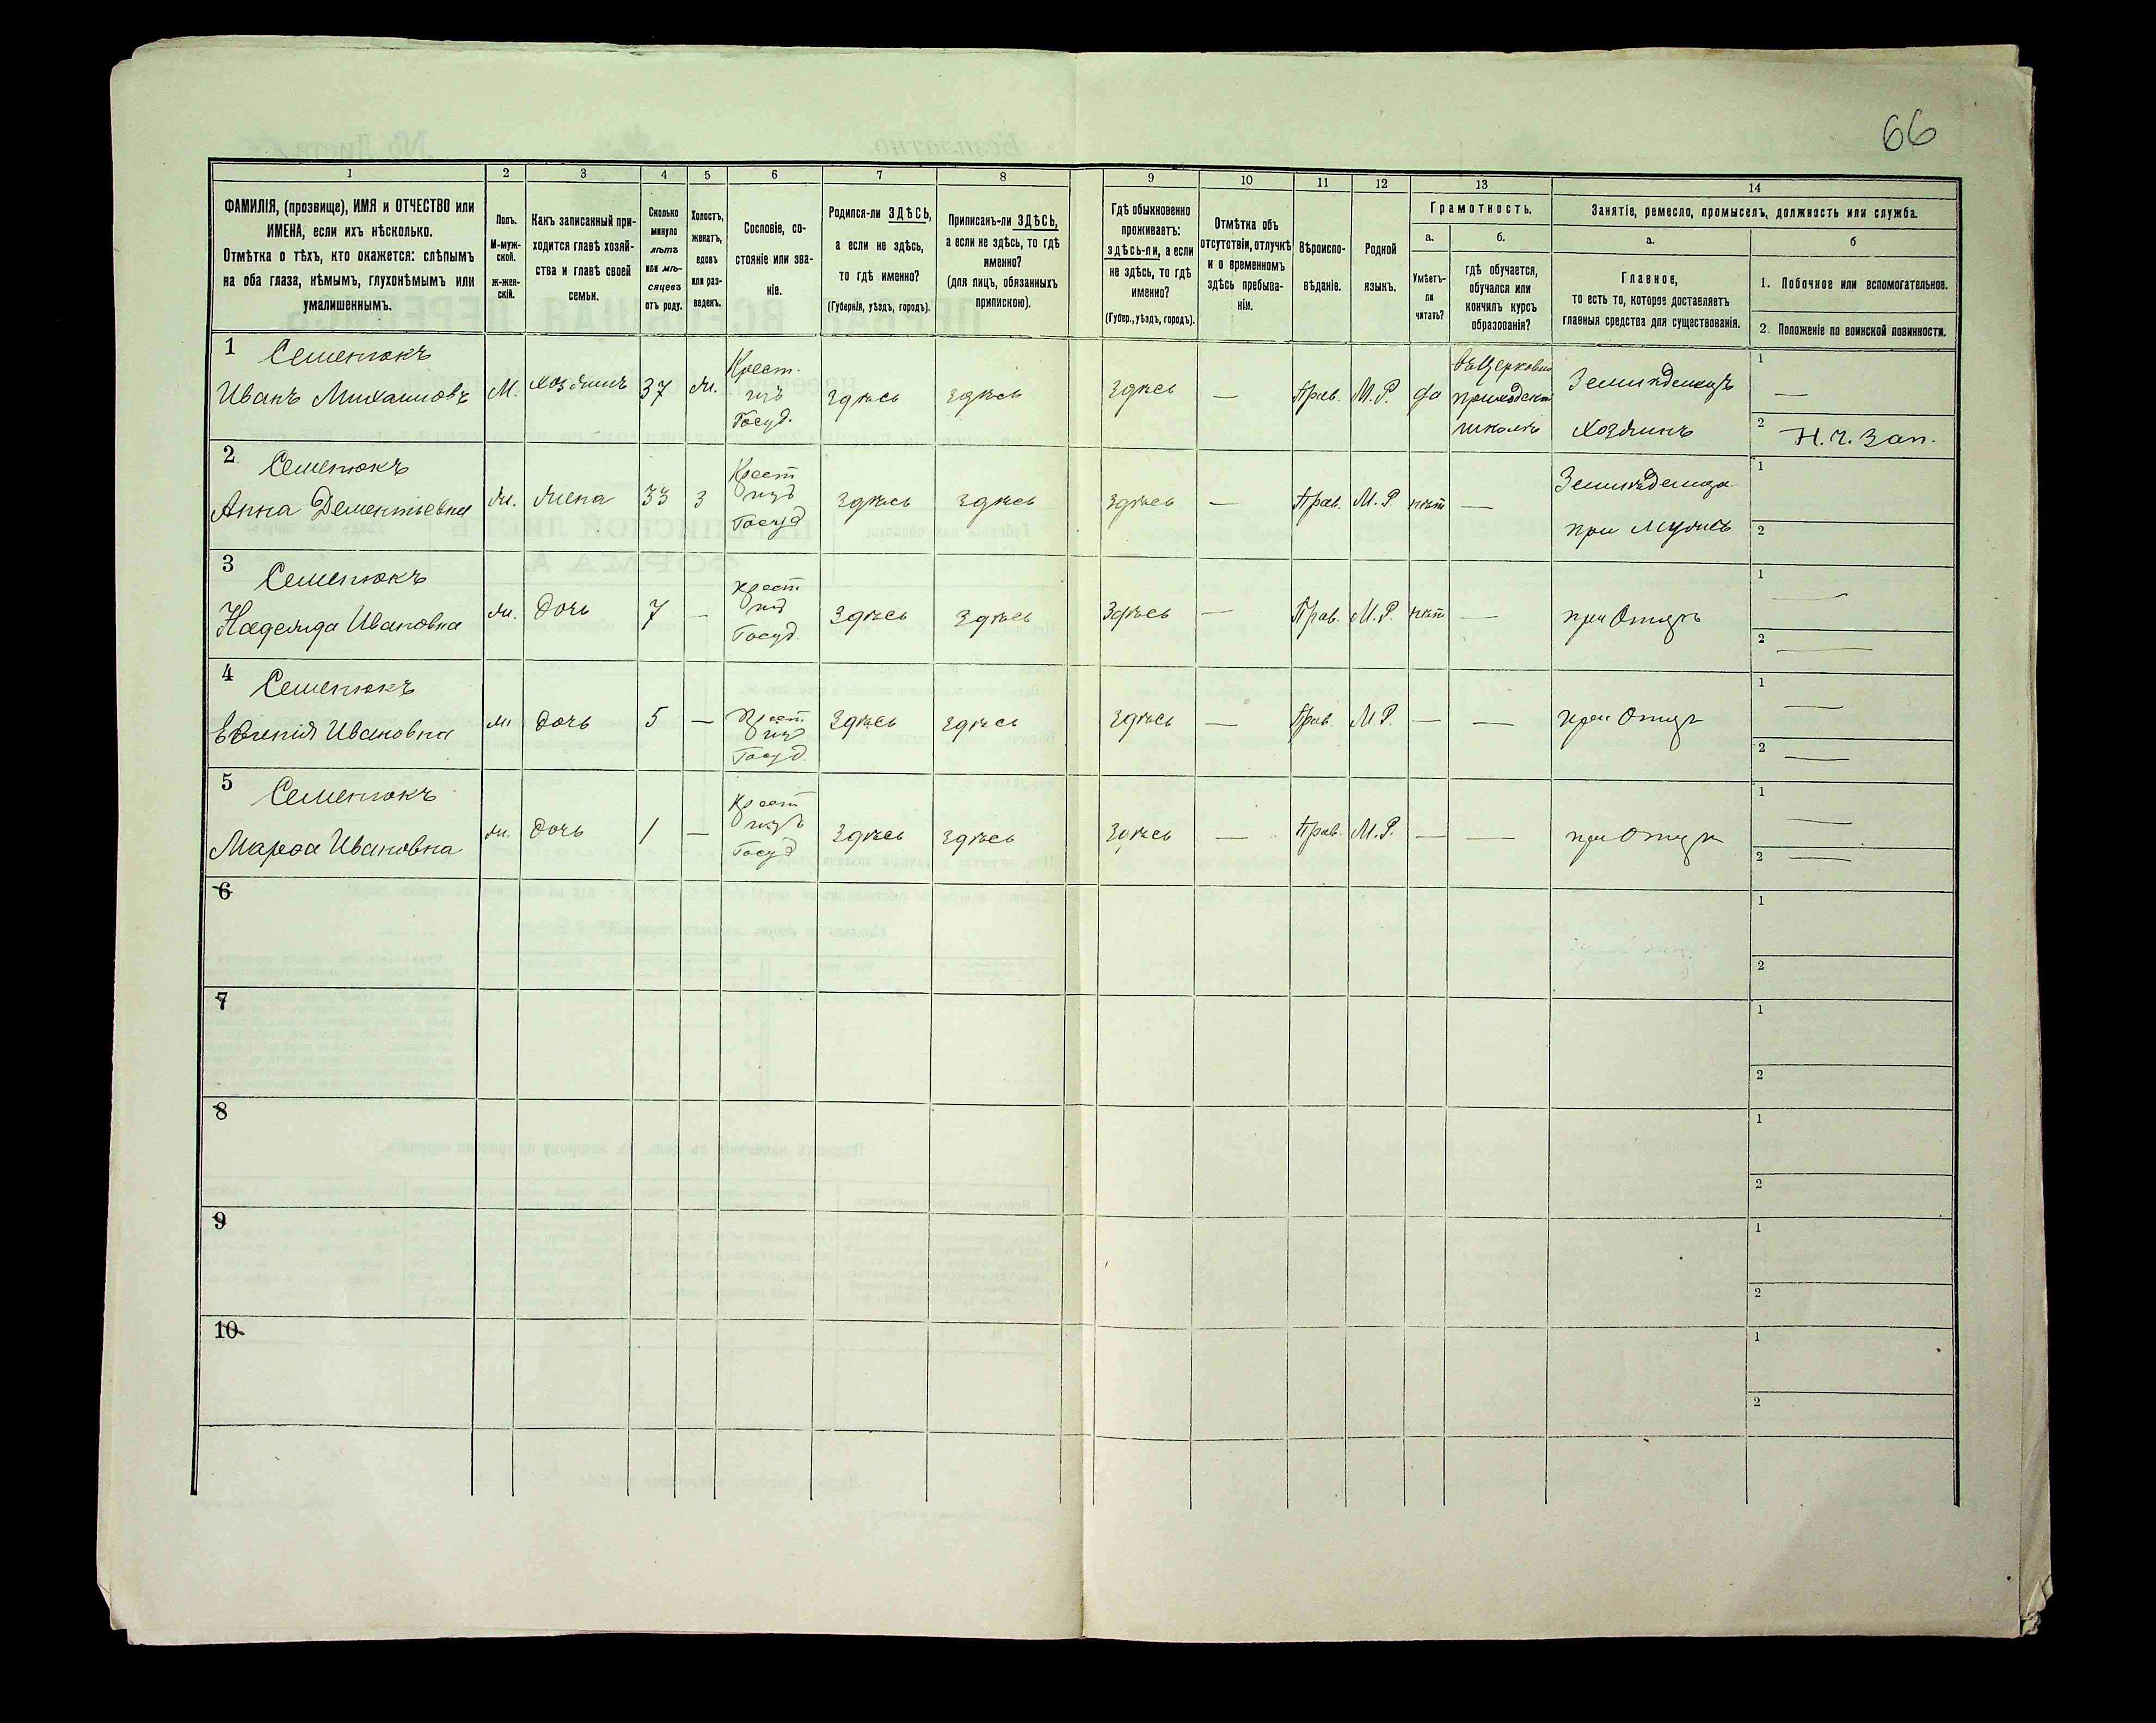 66
1
2
3
4
5
6
7
8
9
10
11
12
13
14
ФАМИЛІЯ, (прозвище), ИМЯ и ОТЧЕСТВО или
ИМЕНА, если ихъ нѣсколько.
Отмѣтка о тѣхъ, кто окажется: слѣпымъ
на оба глаза, нѣмымъ, глухонѣмымъ или
умалишеннымъ.
Полъ.
М-муж-
ской.
ж-жен-
скій.
Какъ записанный при-
ходится главѣ хозяй-
ства и главѣ своей
семьи.
Сколько
минуло
лѣтъ
или мѣ-
сяцевъ
отъ роду.
Холостъ,
женатъ,
вдовъ
или раз-
веденъ.
Сословіе, со-
стояніе или зва-
ніе.
Родился-ли ЗДѢСЬ,
а если не здѣсь,
то гдѣ именно?
(Губернія, уѣздъ, городъ).
Приписанъ-ли ЗДѢСЬ,
а если не здѣсь, то гдѣ
именно?
(для лицъ, обязанныхъ
припискою).
Гдѣ обыкновенно
проживаетъ:
здѣсь-ли, а если
не здѣсь, то гдѣ
именно?
(Губер., уѣздъ, городъ).
Отмѣтка объ
отсутствіи, отлучкѣ
и о временномъ
здѣсь пребыва-
ніи.
Вѣроиспо-
вѣданіе.
Родной
языкъ.
Грамотность.
а.
Умѣетъ-
ли
читать?
б.
гдѣ обучается,
обучался или
кончилъ курсъ
образованія?
Занятіе, ремесло, промыселъ, должность или служба.
а.
Главное,
то есть то, которое доставляетъ
главныя средства для существованія.
б
1. Побочное или вспомогательное.
2. Положеніе по воинской повинности.
1 Семенюкъ
Иванъ Михаиловъ
М.
хозяинъ
37
ж.
Крест.
изъ
Госуд.
здѣсь
здѣсь
здѣсь
—
Прав.
М.Р.
да
приходской
школѣ
Хозяинъ
1
—
2 Н. ч. Зап.
2 Семенюкъ
Анна Дементьевна
ж.
жена
33
з
Крест
изъ
Госуд
здѣсь
здѣсь
здѣсь
—
Прав.
М.Р.
нѣт
—
при мужѣ
1
2
3 Семенюкъ
Надежда Ивановна
ж.
дочь
7
—
крест
изъ
Госуд.
здѣсь
здѣсь
здѣсь
—
Прав.
М.Р.
нѣт
—
при Отцѣ
1
—
2
—
4 Семенюкъ
Евгенія Ивановна
ж
дочь
5
—
Крест
изъ
Госуд.
здѣсь
здѣсь
здѣсь
—
Прав.
М.Р.
—
—
при Отцѣ
1
—
2
—
5 Семенюкъ
Марѳа Ивановна
ж.
дочь
1
—
Крест
изъ
Госуд
здѣсь
здѣсь
здѣсь
—
Прав.
М.Р.
—
—
при Отцѣ
1
—
2
—
6
1
2
7
1
2
8
1
2
9
1
2
10
1
2